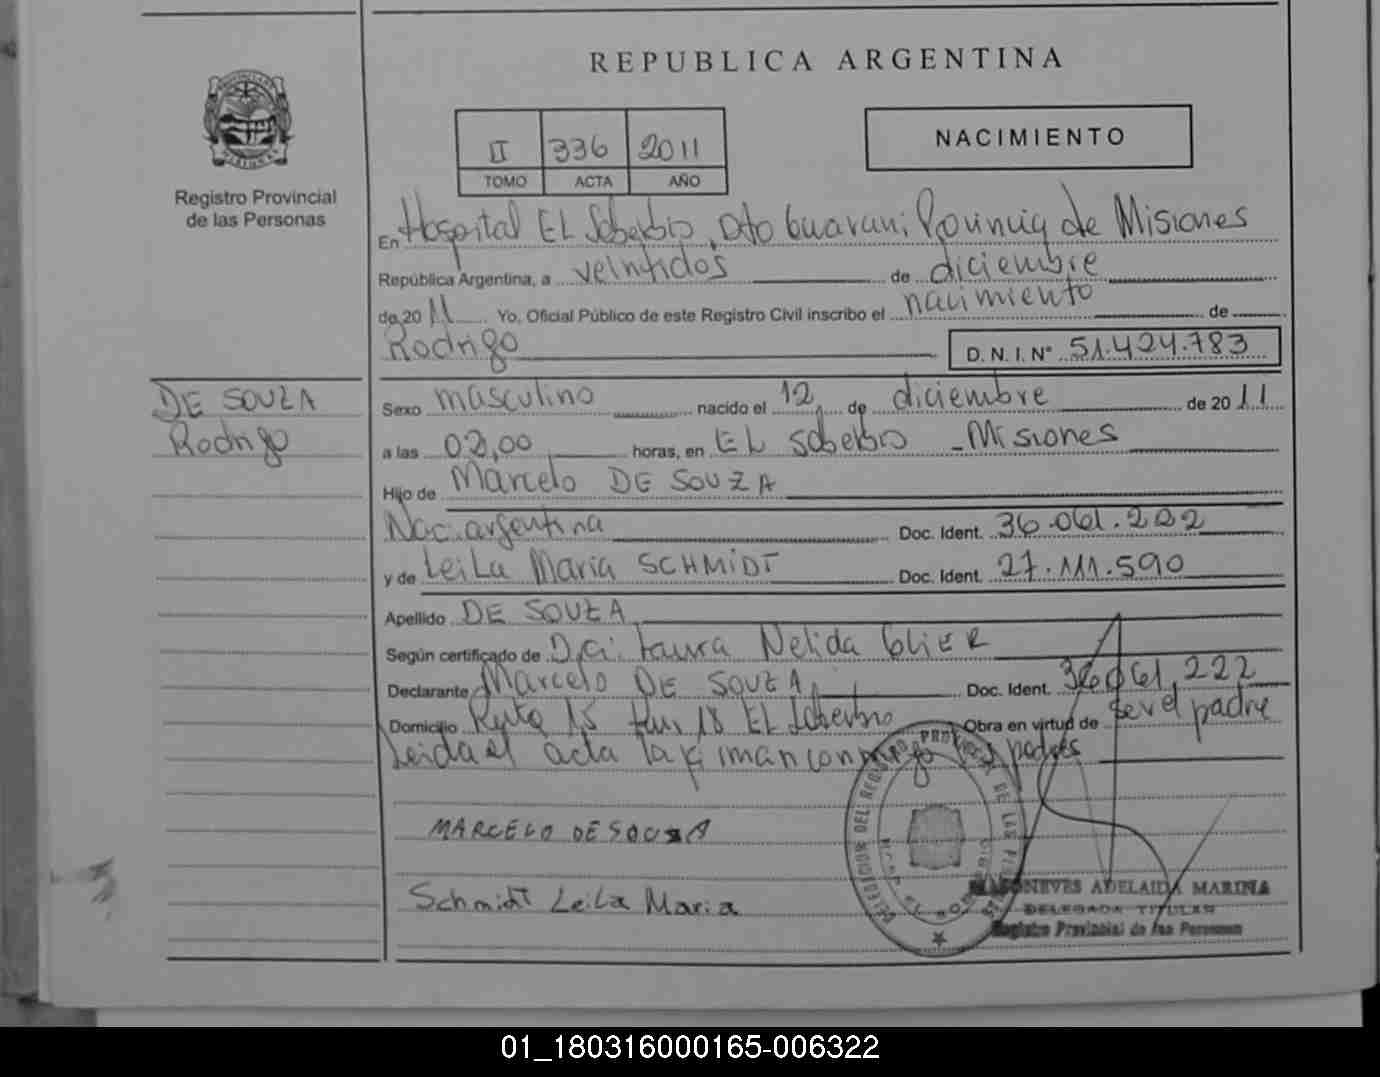 REPUBLICA ARGENTINA
NACIMIENTO
II 336 2011
TOMO ACTA AÑO
Registro Provincial
de las Personas
En Hospital EL Soberbio, Dto Guarani Provincia de Misiones
República Argentina, a veintidos de diciembre
de 2011 Yo, Oficial Público de este Registro Civil inscribo el nacimiento de
Rodrigo D.N.I.Nº 51.424.783
DE SOUZA
Rodrigo
Sexo masculino nacido el 12 de diciembre de 2011
a las 02,00 horas, en EL Soberbio - Misiones
Hijo de Marcelo DE SOUZA
Nac. argentina Doc. Ident. 36.061.222
y de Leila Maria SCHMIDT Doc. Ident. 27.111.590
Apellido DE SOUZA
Según certificado de Laura Nelida GLIER
Declarante Marcelo DE SOUZA Doc. Ident. 36.061.222
Domicilio Ruta 15 km 18 EL Soberbio Obra en virtud de ser el padre
Leida el acta la firman conmigo los padres
MARCELO DE SOUZA
Schmidt Leila Maria
ADELAIDA MARINA
DELEGADA TITULAR
Registro Provincial de las Personas
01_180316000165-006322